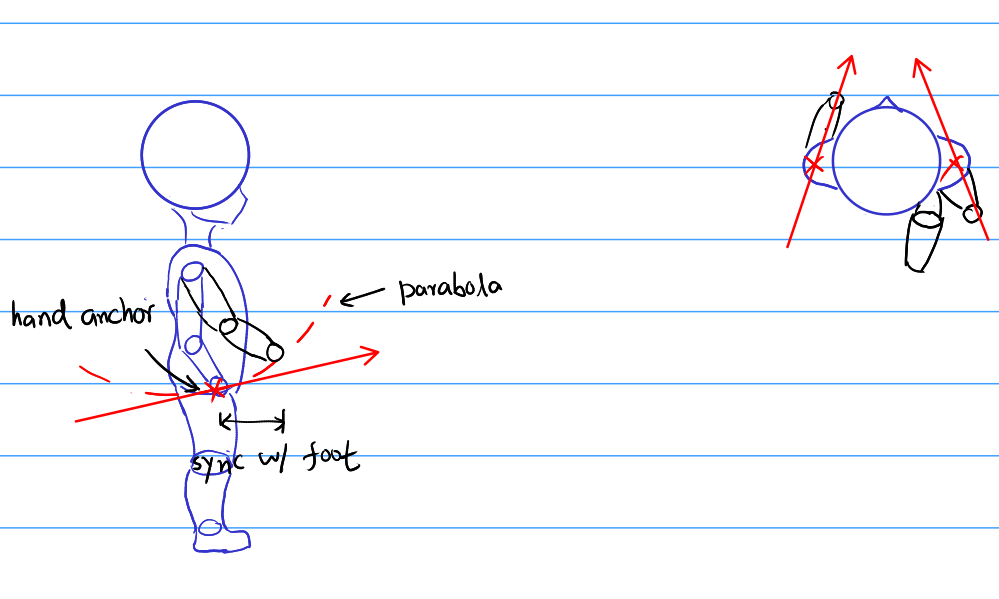 parabola
hand anchor
sync w/ foot